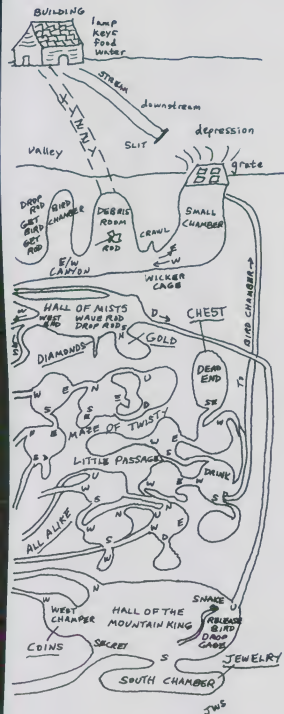 BUILDING
lamp
keys
food
water
STREAM
downstream
SLIT
XYZZY
valley
depression
grate
DROP
ROD
GET
BIRD
GET
ROD
BIRD
CHAMBER
DEBRIS
ROOM
ROD
CRAWL
SMALL
CHAMBER
E/W
CANYON
E
W
WICKER
CAGE
TO BIRD CHAMBER
HALL OF MISTS
W
WEST
END
WAVE ROD
DROP RODS
D
CHEST
N
GOLD
DIAMONDS
DEAD
END
SE
MAZE OF TWISTY
LITTLE PASSAGES
DRINK
ALL ALIKE
N
W
WEST
CHAMPER
HALL OF THE
MOUNTAIN KING
SNAKE
U
RELEASE
BIRD
DROP
CAGE
COINS
SECRET
S
JEWELRY
SOUTH CHAMBER
JWS